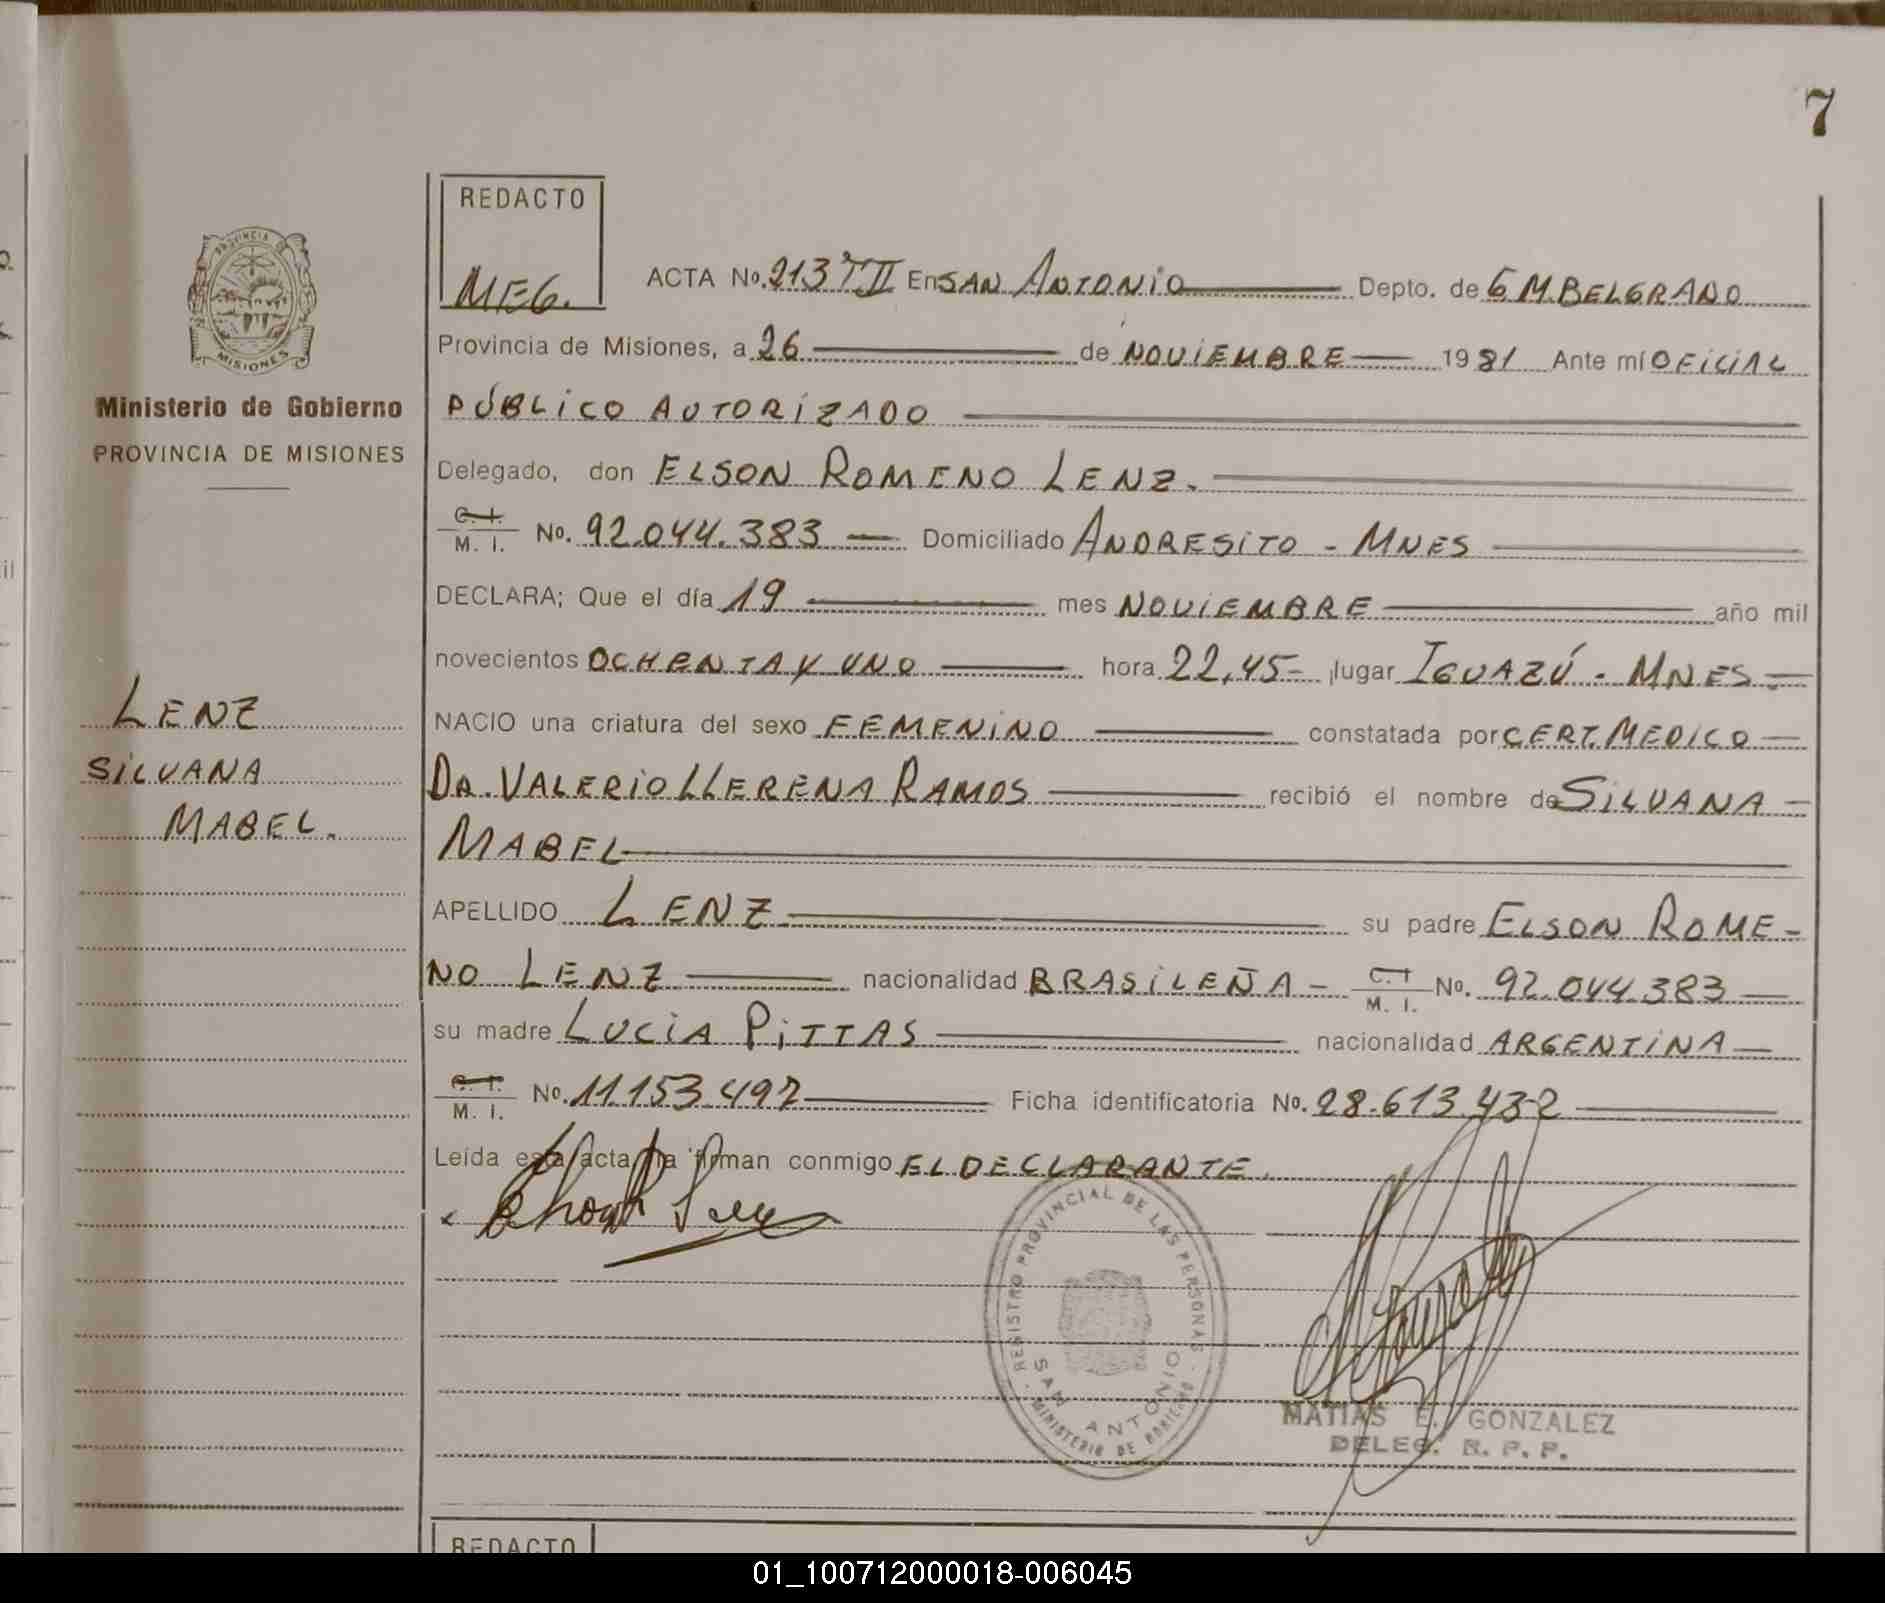 7
REDACTO
MEG.
ACTA No. 213 TII En SAN ANTONIO Depto. de G M. BELGRANO
PROVINCIA DE
MISIONES
Provincia de Misiones, a 26 de NOVIEMBRE 1981 Ante mí OFICIAL
Ministerio de Gobierno
PROVINCIA DE MISIONES
PÚBLICO AUTORIZADO
Delegado, don ELSON ROMENO LENZ.
C. I.
M. I. No. 92.044.383 Domiciliado ANDRESITO - MNES
DECLARA; Que el día 19 mes NOVIEMBRE año mil
novecientos OCHENTA Y UNO hora 22,45 lugar IGUAZÚ - MNES
LENZ
SILVANA
MABEL.
NACIO una criatura del sexo FEMENINO constatada por CERT. MEDICO
DR. VALERIO LLERENA RAMOS recibió el nombre de SILVANA
MABEL
APELLIDO LENZ su padre ELSON ROME-
NO LENZ nacionalidad BRASILEÑA - C. I
M. I. No. 92.044.383
su madre LUCIA PITTAS nacionalidad ARGENTINA
C. I.
M. I. No. 11.153.497 Ficha identificatoria No. 28.613.432
Leída esta acta la firman conmigo EL DECLARANTE.
REGISTRO PROVINCIAL DE LAS PERSONAS
SAN ANTONIO
MINISTERIO DE
MATIAS E. GONZALEZ
DELEG. R. P. P.
REDACTO
01_100712000018-006045